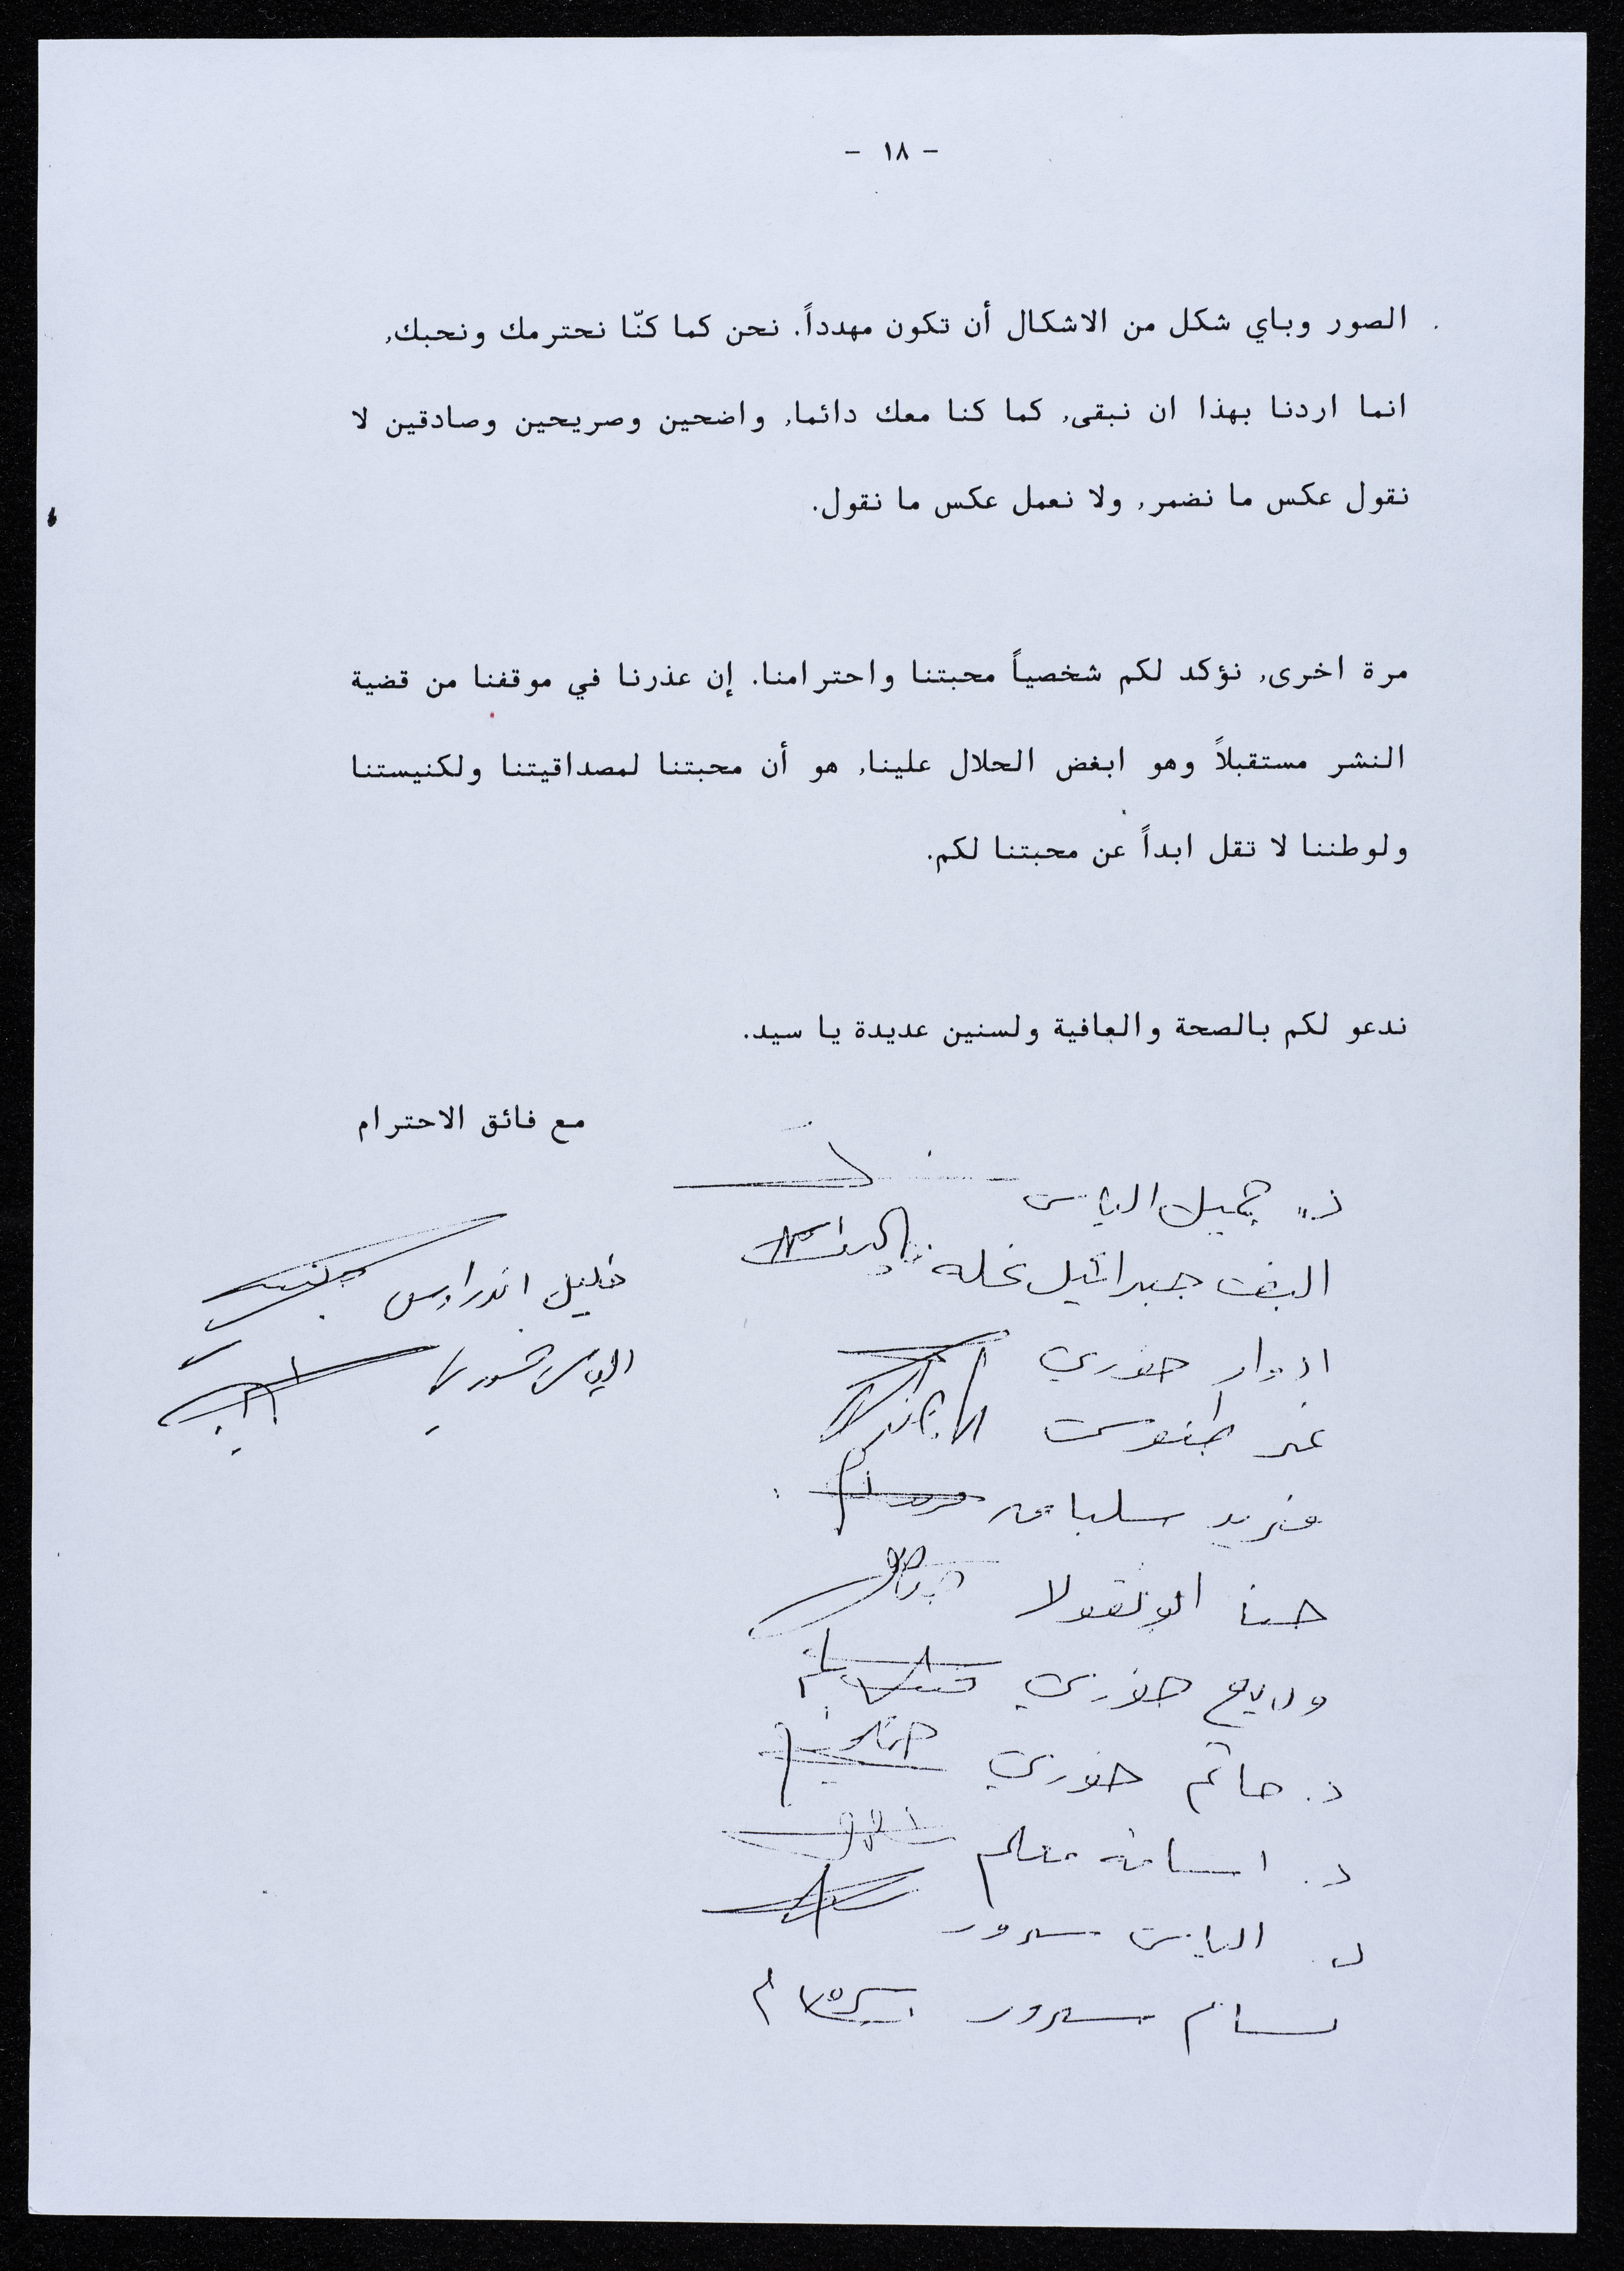 - ١٨ -
الصور وباي شكل من الاشكال أن تكون مهدداً. نحن كما كنّا نحترمك ونحبك,
انما اردنا بهذا ان نبقى, كما كنا معك دائما, واضحين وصريحين وصادقين لا
نقول عكس ما نضمر, ولا نعمل عكس ما نقول.
مرة اخرى, نؤكد لكم شخصياً محبتنا واحترامنا. إن عذرنا في موقفنا من قضية
النشر مستقبلاً وهو ابغض الحلال علينا, هو أن محبتنا لمصداقيتنا ولكنيستنا
ولوطننا لا تقل ابداً عن محبتنا لكم.
ندعو لكم بالصحة والعافية ولسنين عديدة يا سيد.
مع فائق الاحترام
د. جميل الياس
جبرائيل نخله
ادوار خوري
طنوس
فريد
حنا ابو نقولا
وديع خوري
د. حاتم خوري
د. اسامه معلم
د. الياس سرور
بسام سرور
خليل اندراوس
الياس